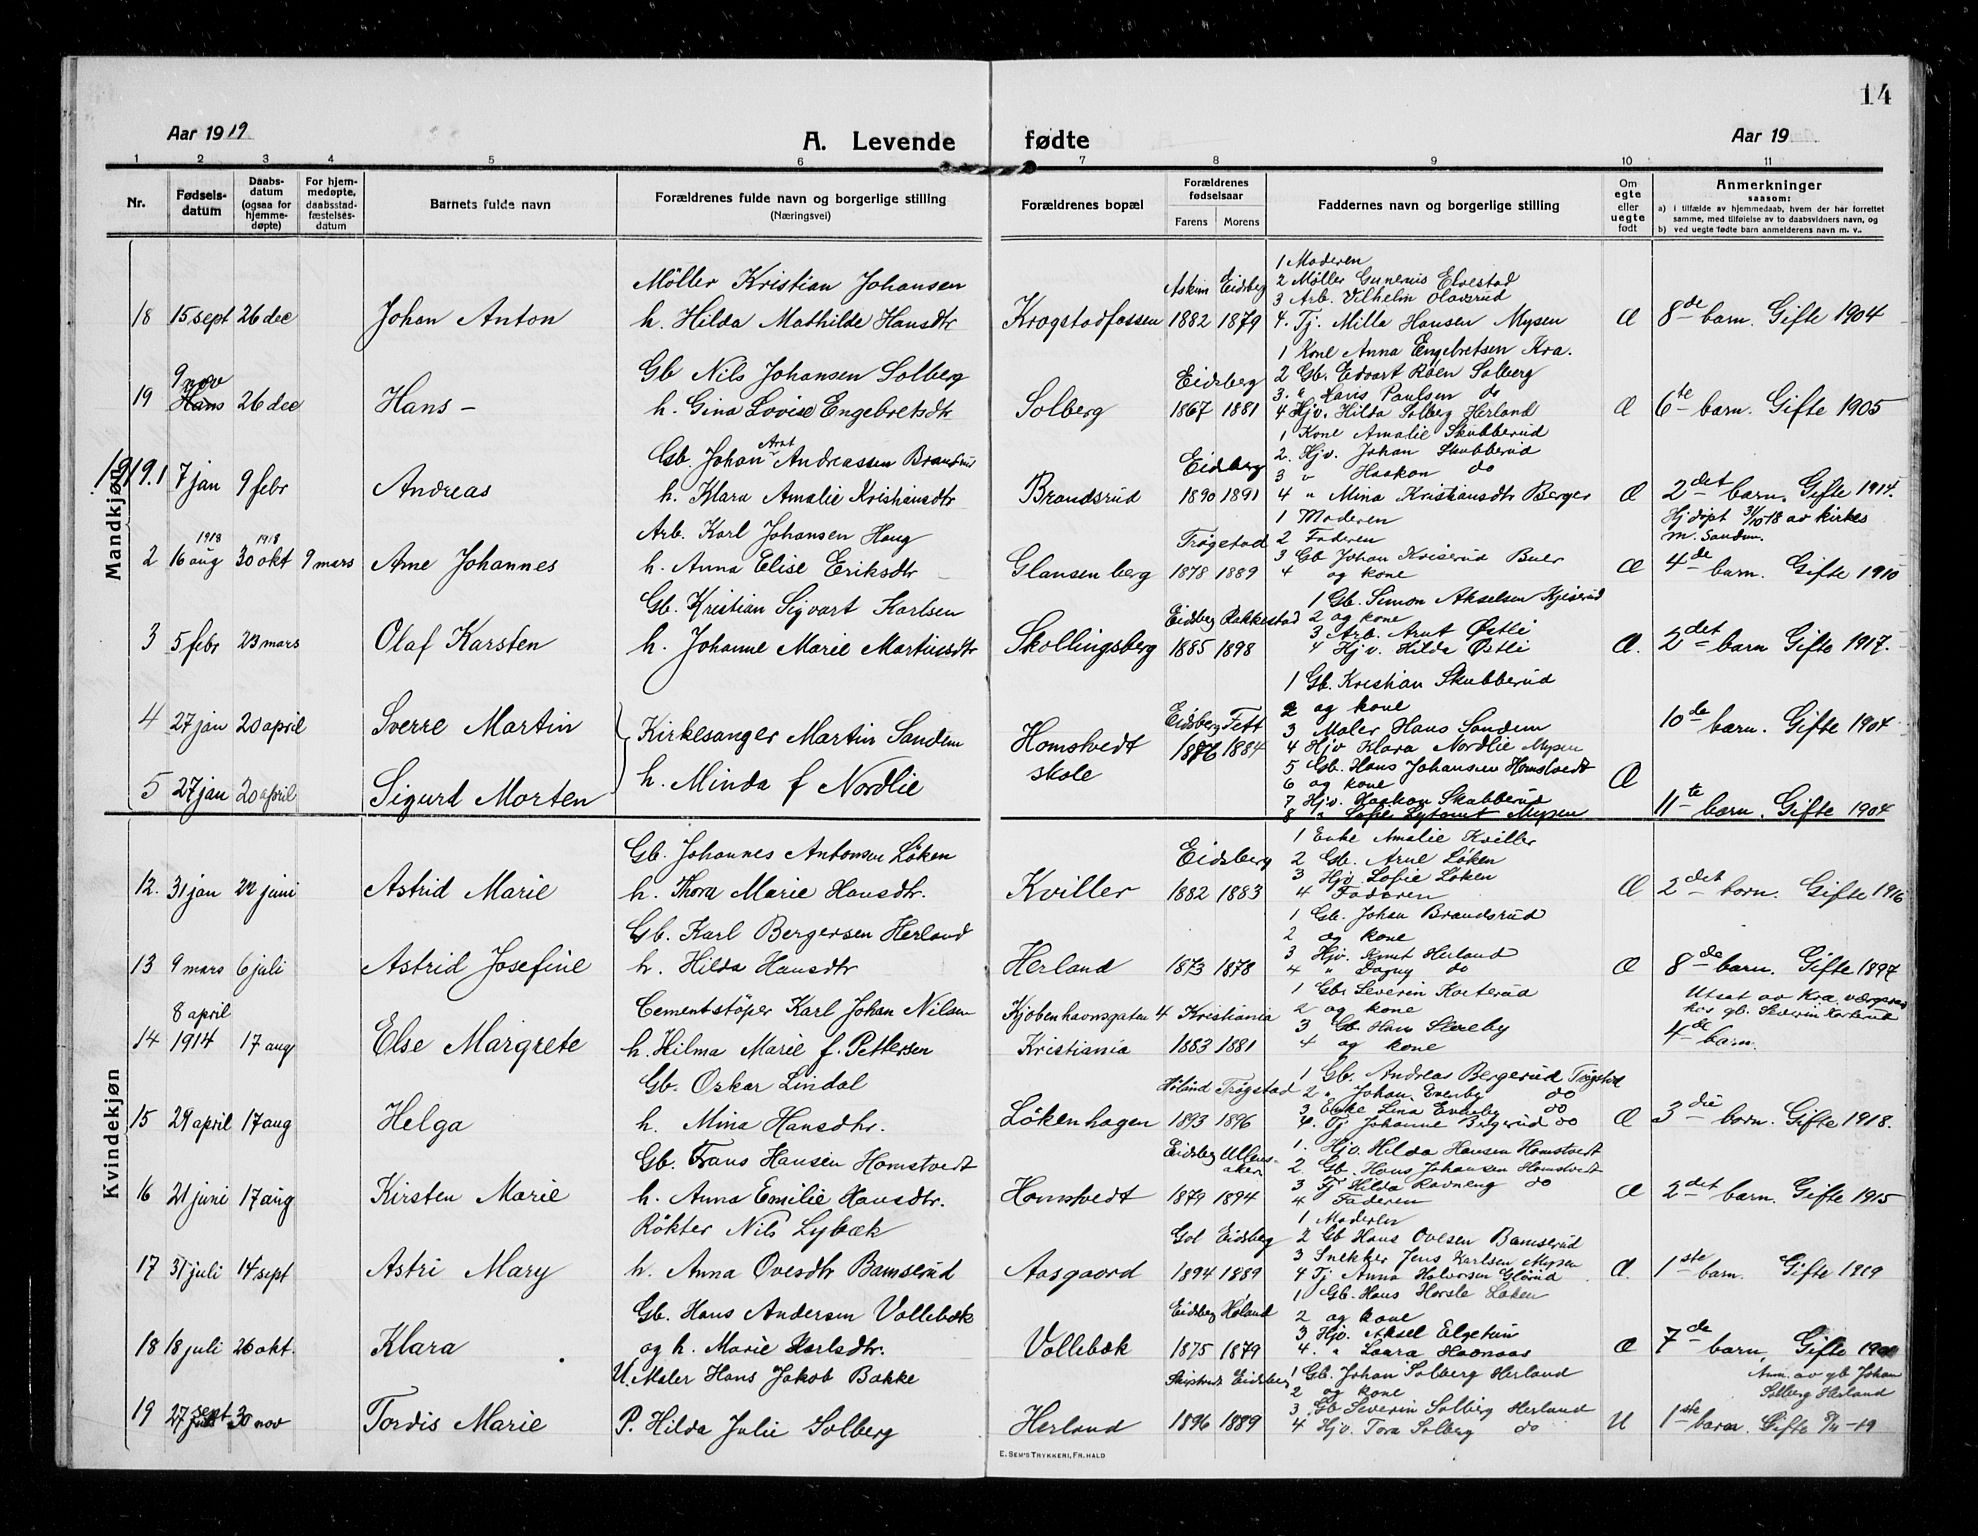 14
Aar 1919
A. Levende fødte
Aar 19
1 2 3 4 5 6 7 8 9 10 11
Nr.
Fødsels-datum
Daabs-datum (ogsaa for hjemme-døpte)
For hjem-medøpte, daabsstad-fæstelses-datum
Barnets fulde navn
Forældrenes fulde navn og borgerlige stilling
(Næringsvei)
Forældrenes bopæl
Forældrenes fødselsaar
Farens Morens
Faddernes navn og borgerlige stilling
Om egte eller uegte født
Anmerkninger
saasom:
a) i tilfælde av hjemmedaab, hvem der har forrettet samme, med tilføielse av to daabsvidners navn, og
b) ved uegte fødte barn anmelderens navn m. v..
Mandkjøn
Møller Kristian Johansen Askim Eidsberg
1 Moderen
2 Møller Gunerius Elvestad
3 Arb. Vilhelm Olavsrud
18 15 sept 26 dec Johan Anton h. Hilda Mathilde Hansdtr Krogstadfossen 1882 1879 4. Tj. Milla Hansen Mysen Æ 8de barn. Gifte 1904
1 Kone Anna Engebretsen Kra.
9 nov Gb Nils Johansen Solberg Eidsberg 2 Gb. Edvart Røen Solberg
3. " Hans Paulsen do
19 Hans 26 dec Hans - h. Gina Lovise Engebretsdtr Solberg 1867 1881 4 Hjv. Hilda Solberg Herland Æ 6te barn. Gifte 1905
1 Kone Amalie Skubberud
Gb. Johan Arnt Andreassen Brandsrud Eidsberg 2. Hjv. Johan Skubberud
3 " Haakon do
1919. 1 7 jan 9 febr Andreas h. Klara Amalie Kristiansdtr Brandsrud 1890 1891 4 " Mina Kristiansdtr Berger Æ 2det barn. Gifte 1914.
1 Moderen Hj døpt 31/10 18 av kirkes m. Sandem.
1918 1918 Arb. Karl Johansen Haug Trøgstad 2 Faderen
3 Gb Johan Kriserud Buer
2 16 aug 30 okt 9 mars Arne Johannes h. Anna Elise Eriksdtr Glansenberg 1878 1889 4 og kone Æ 4de barn. Gifte 1910
Gb. Kristian Sigvart Karlsen 1 Gb. Simon Akselsen
Eidsberg Rakkestad 2 og kone
3 Arb. Arnt Østli
3 5 febr 23 mars Olaf Karsten h. Johanne Marie Martinsdtr Skollingsberg 1885 1898 4 Hjv. Hilda Østli Æ. 2det barn Gifte 1917.
1 Gb. Kristian Skubberud
2 og kone
4 27 jan 20 april Sverre Martin Kirkesanger Martin Sandem Homstvedt skole Eidsberg Fett 1876 1884 3 Maler Hans Sandem 10de barn. Gifte 1904
4 Hjv Klara Nordlie Mysen
5 Gb. Hans Johansen Homstvedt
6 og kone
5 27 jan 20 april Sigurd Morten h. Minda f Nordlie Æ 11te barn. Gifte 1904
7 Hjv. Haakon Skubberud
8 " Sofie Mysen
Kvindekjøn
1 Enke Amalie Kviller
Gb. Johannes Antonsen Løken Eidsberg 2 Gb. Arne Løken
3 Hjv Sofie Løken
12. 31 jan 22 juni Astrid Marie h. Thora Marie Hansdtr. Kviller 1882 1883 4 Faderen Æ 2det barn. Gifte 1916
1 Gb. Johan Brandsrud
Gb. Karl Bergersen Herland 2 og kone
3 Hjv. Herland
13 9 mars 6 juli Astrid Josefine h. Hilda Hansdtr Herland 1873 1878 4 " Dagny do Æ 8de barn. Gifte 1897
1 Gb. Severin Korterud Utsat av Kra. værgeraad hos gb. Severin Korterud
8 april Cementstøper Karl Johan Nilsen Kjøbenhavnsgaten 4 Kristiania 2 og kone
3 Gb Hans Slereby
14 1914 17 aug Else Margrete h. Hilma Marie f. Pettersen Kristiania 1883 1881 4 og kone 4de barn.
Gb. Oskar Lindal 1 Gb. Andreas Bergerud Trøgstad
Høland Trøgstad 2 " Johan Evenby do
3 Enke Lina Evenby do
15 29 april 17 aug Helga h. Mina Hansdtr. Løkenhagen 1893 1896 4. Tj Johanne Bergerud do Æ 3die barn. Gifte 1918.
Gb. Frans Hansen Homstvedt Eidsberg Ullens-aker 1. Hjv. Hilda Hansen Homstvedt
2. Gb. Hans Johansen Homstvedt
3 Tj Hilda Ravneng do
16 21 juni 17 aug Kirsten Marie h. Anna Emilie Hansdtr. Homstvedt 1879 1894 4 Faderen Æ 2det barn. Gifte 1915
1 Moderen
Røkter Nils Lybæk Gol Eidsberg 2 Gb Hans Ovesen Bamserud
3 Snekker Jens Karlsen Mysen
17 31 juli 14 sept Astri Mary h. Anna Ovesdtr Bamserud Aasgaard 1894 1889 4 Tj Anna Halvorsen Glørud Æ. 1ste barn. Gifte 1919
1 Gb. Hans Horsle Løken
Gb. Hans Andersen Vollebæk Eidsberg Høland 2 og kone
3 Hjv. Aksel Elgetun
18 18 juli 26 okt. Klara og h. Marie Karlsdtr. Vollebæk 1875 1879 4. " Laura Haanaas Æ 7de barn, Gifte
U. Maler Hans Jakob Bakke Skiptvedt Eidsberg 1 Gb. Johan Solberg Herland Anm. av gb Johan Solberg Herland
2 og kone
3. Gb Severin Solberg Herland
19 27 sept 30 nov Tordis Marie P. Hilda Julie Solberg Herland 1896 1889 4 Hjv. Tora Solberg do U 1ste barn. Gifte 8/11 -19
E. SEM'S TRYKKERI, FR. HALD